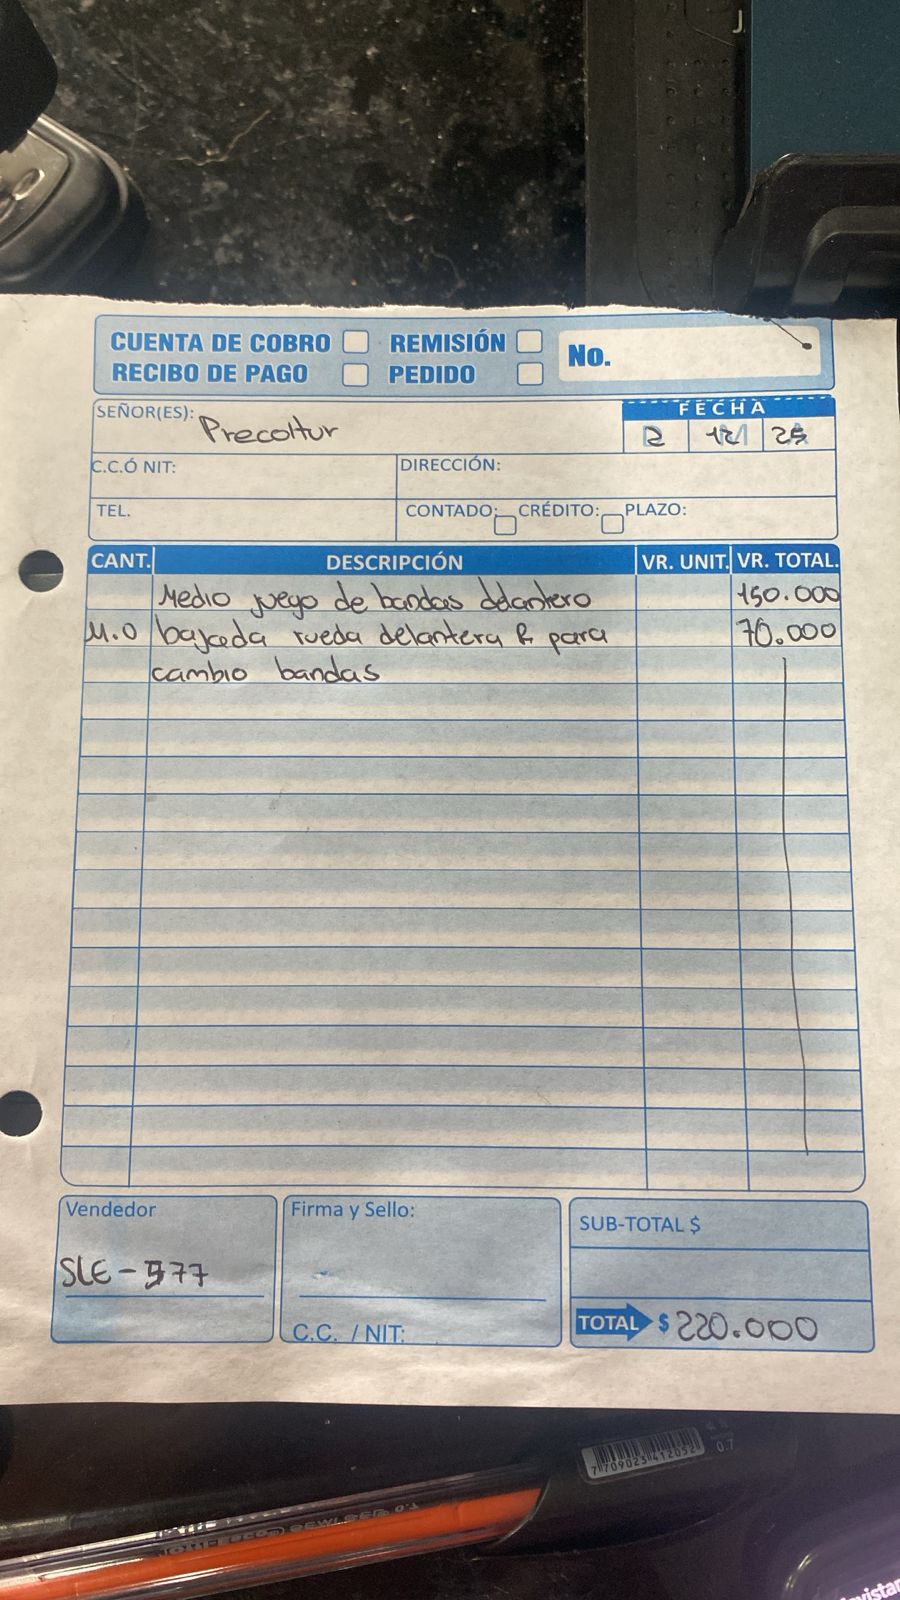 CUENTA DE COBRO REMISIÓN No.
RECIBO DE PAGO PEDIDO
SEÑOR(ES): Precoltur FECHA
12 25
C.C.Ó NIT: DIRECCIÓN:
TEL. CONTADO: CRÉDITO: PLAZO:
CANT. DESCRIPCIÓN VR. UNIT. VR. TOTAL.
Medio juego de bandas delantero 150.000
M.O bajada rueda delantera R para 70.000
cambio bandas
Vendedor Firma y Sello: SUB-TOTAL $
SLE-577
C.C. / NIT: TOTAL $ 220.000
7 709023 412052
0.7